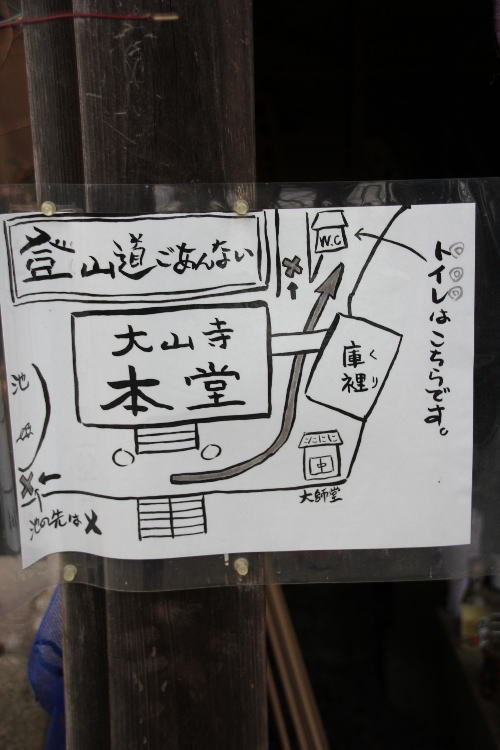 登山道ごあんない
W.C
トイレはこちらです。
大山寺
本堂
庫裡
くり
中
大師堂
池
池の先は✗